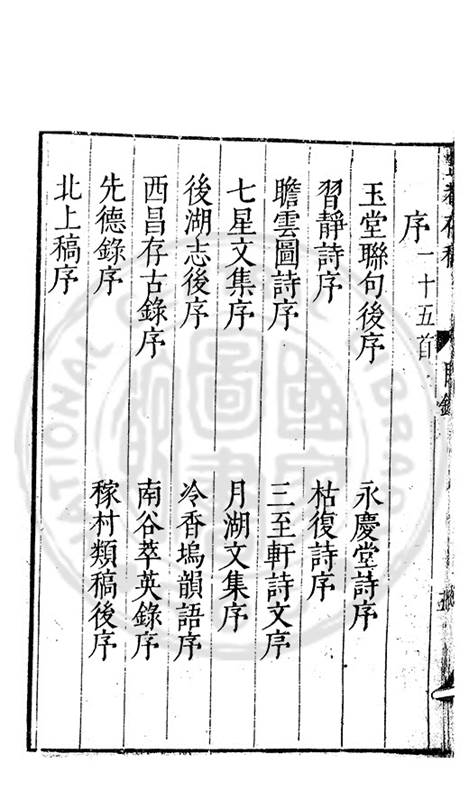 存稿
目錄
序一十五首
玉堂聯句後序 永慶堂詩序
習靜詩序 枯復詩序
瞻雲圖詩序 三至軒詩文序
七星文集序 月湖文集序
後湖志後序 冷香塢韻語序
西昌存古錄序 南谷萃英錄序
先德錄序 稼村類稿後序
北上稿序